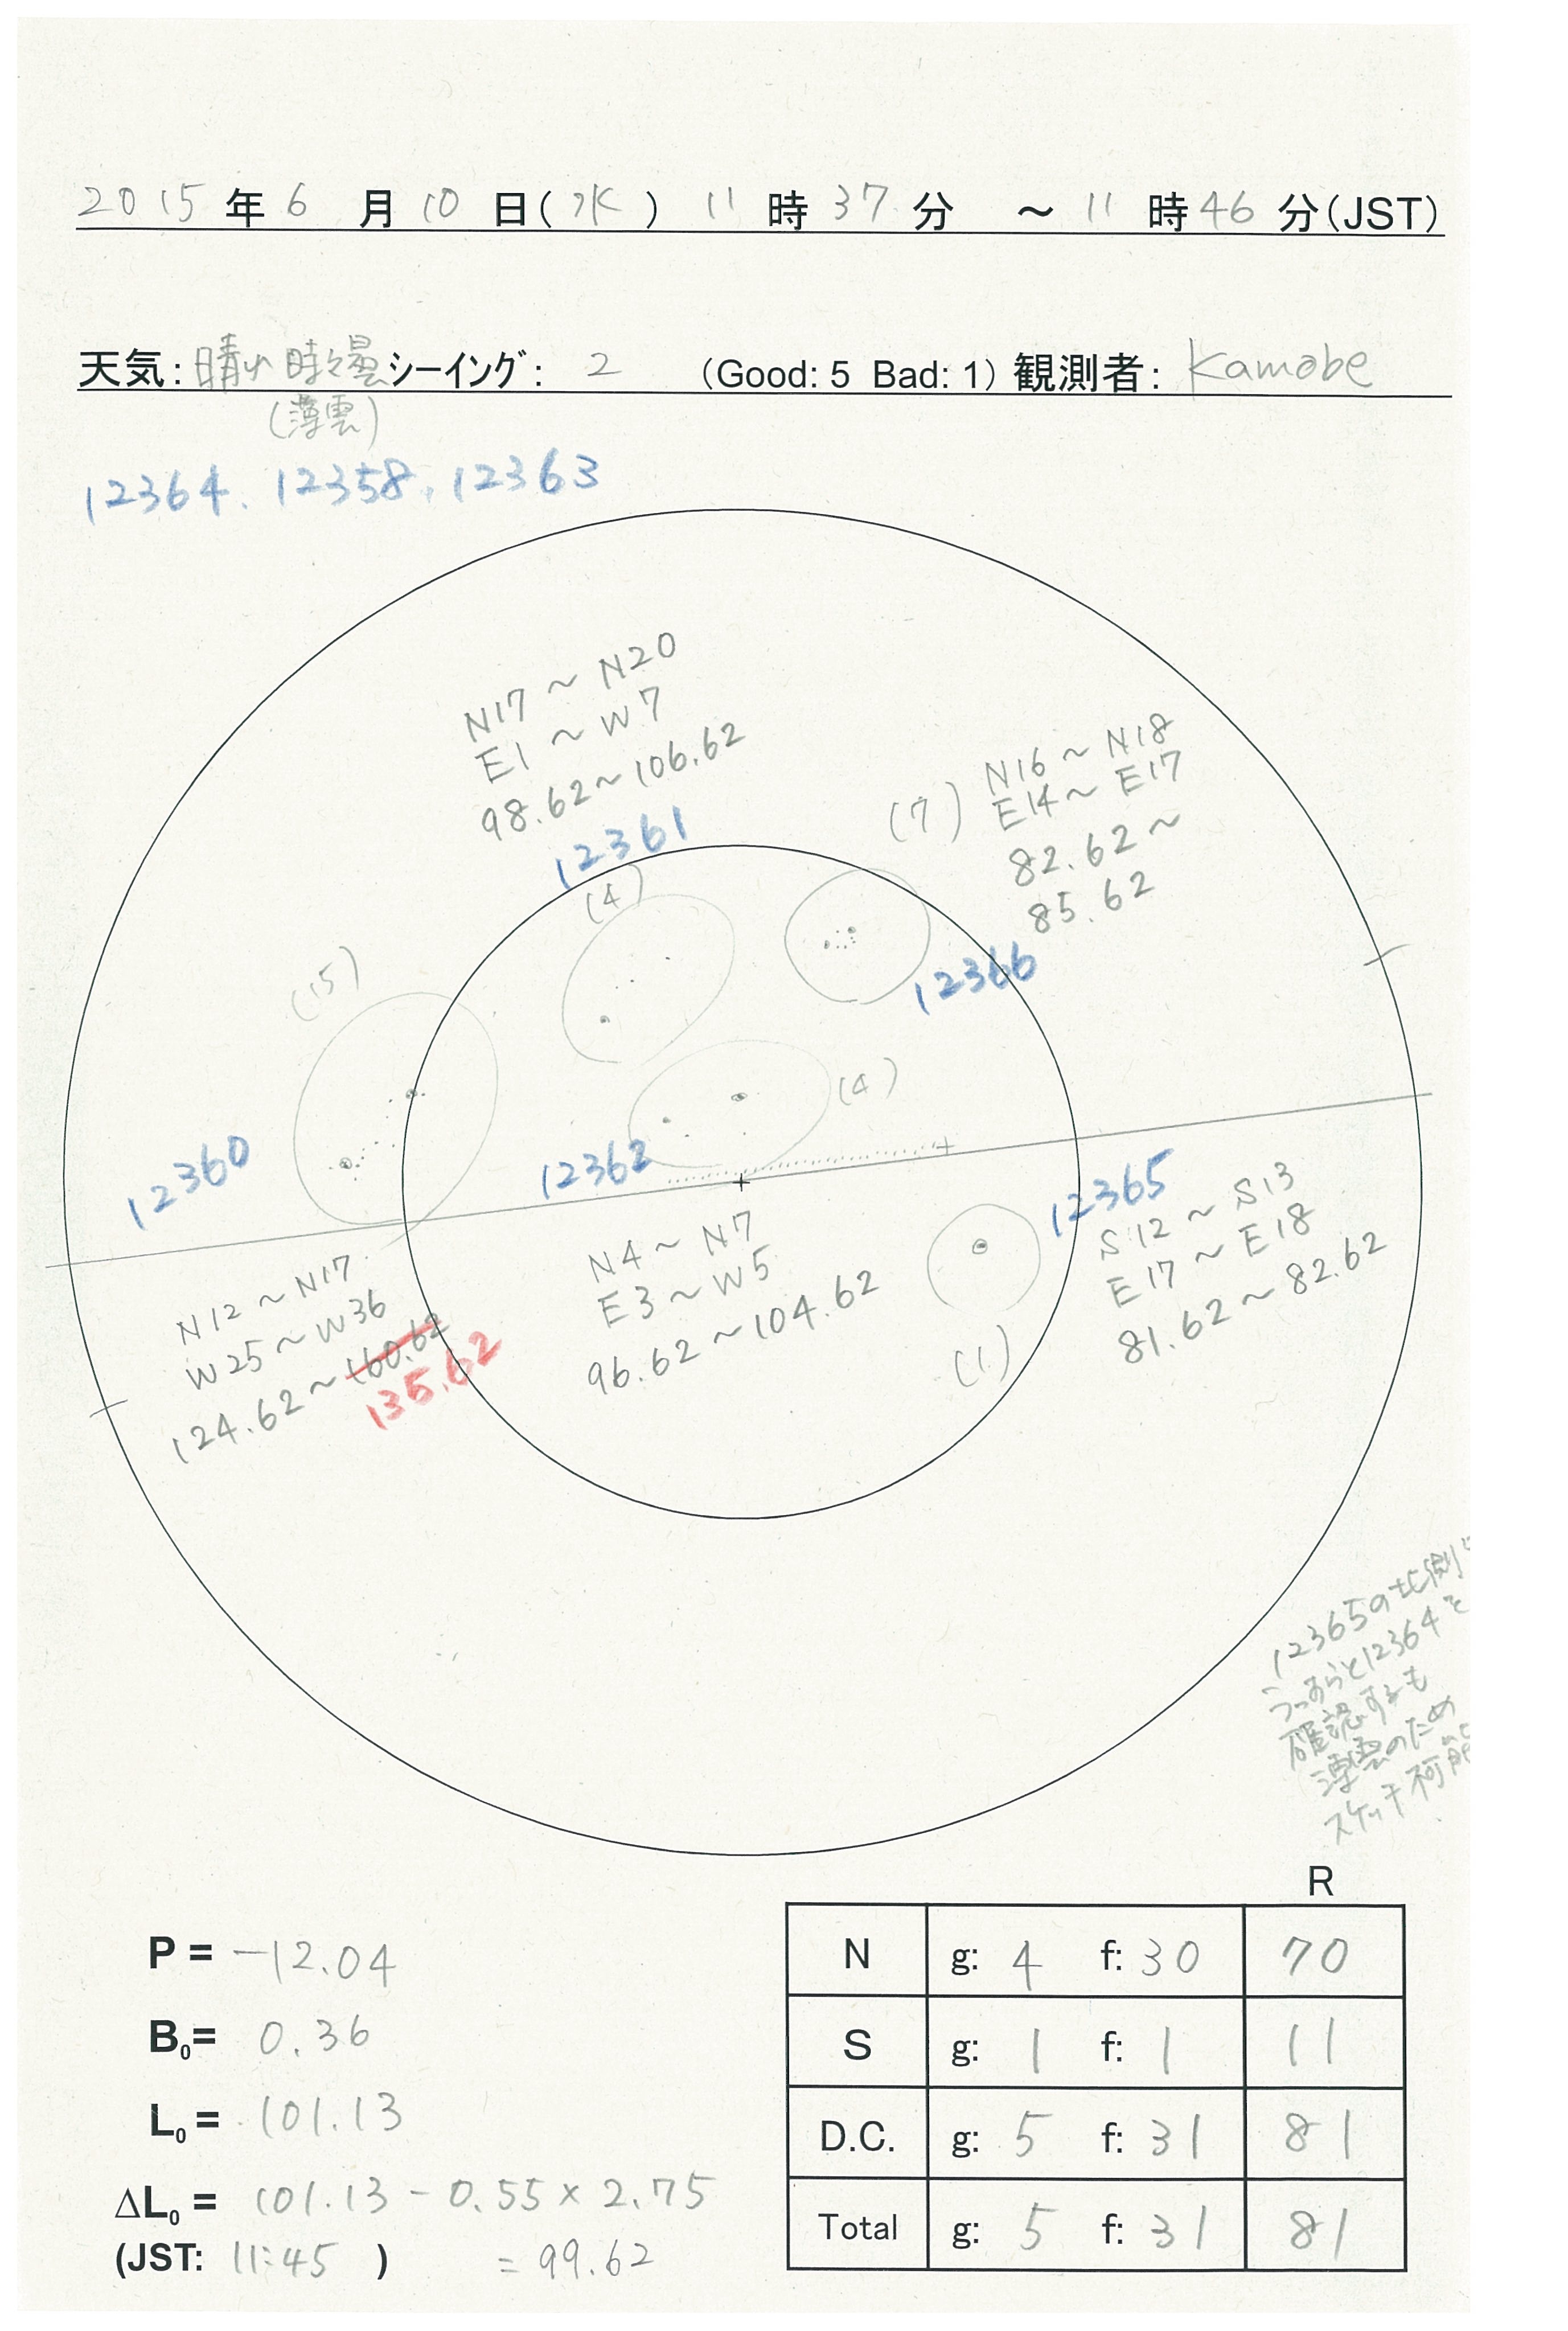 2015年6月10日(水) 11時37分 ～11時46分(JST)
天気: 晴れ時々曇 シーイング: 2 (Good: 5 Bad: 1) 観測者: Kamobe
(薄雲)
12364. 12358. 12363
N17～N20
E1～W7
98.62～106.62
12361
(4)
(7)
N16～N18
E14～E17
82.62～
85.62
12366
(15)
12360
N12～N17
W25～W36
124.62～160.62
135.62
(4)
12362
N4～N7
E3～W5
96.62～104.62
12365
S12～S13
E17～E18
81.62～82.62
(1)
12365の北側に
うっすらと12364を
確認するも
薄雲のため
スケッチ不可能
P = -12.04
B₀= 0.36
L₀= 101.13
ΔL₀ = 101.13 - 0.55 × 2.75
(JST: 11:45 ) = 99.62
R
N g: 4 f: 30 70
S g: 1 f: 1 11
D.C. g: 5 f: 31 81
Total g: 5 f: 31 81